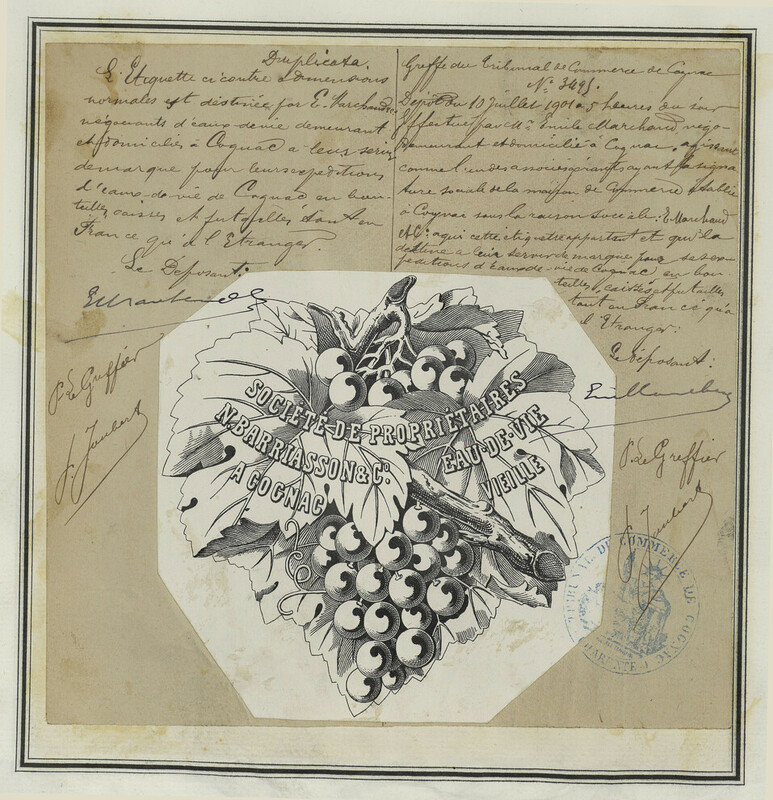 Duplicata.
L'Etiquette ci contre à Dimensions
normales est destinée par E. Marchand
négociants d'eaux-de-vie demeurant
et domiciliés à Cognac à leur servir
de marque pour leurs expéditions
d'eaux-de-vie de Cognac en bou-
teilles, caisses et futailles tant en
France qu'à l'Etranger.
Le Déposant:
P. Le Greffier
J. Joubert
Greffe du Tribunal de Commerce de Cognac
N° 3491.
Dépôt du 10 Juillet 1901 à 5 heures du soir
Effectué par Mr. Emile Marchand négo-
demeurant et domicilié à Cognac, agissant
comme l'un des associés gérants ayant la signa
ture sociale de la maison de Commerce établie
à Cognac sous la raison sociale: E. Marchand
& C°: à qui cette étiquette appartient et qui la
destine à leur servir de marque pour ses ex-
péditions d'Eaux-de-vie de Cognac en bou
teilles, caisses et futailles
tant en France qu'à
l'Etranger:
Le déposant:
P. Le Greffier
J. Joubert
SOCIÉTÉ DE PROPRIÉTAIRES
N. BARRIASSON & C°.
A COGNAC
EAU-DE-VIE
VIEILLE
TRIBUNAL DE COMMERCE DE COGNAC
CHARENTE